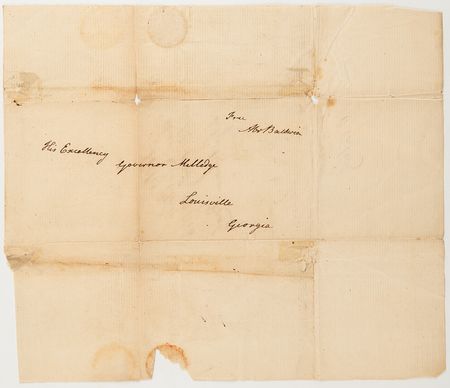 Free
Abr Baldwin
His Excellency
Governor Milledge
Louisville
Georgia